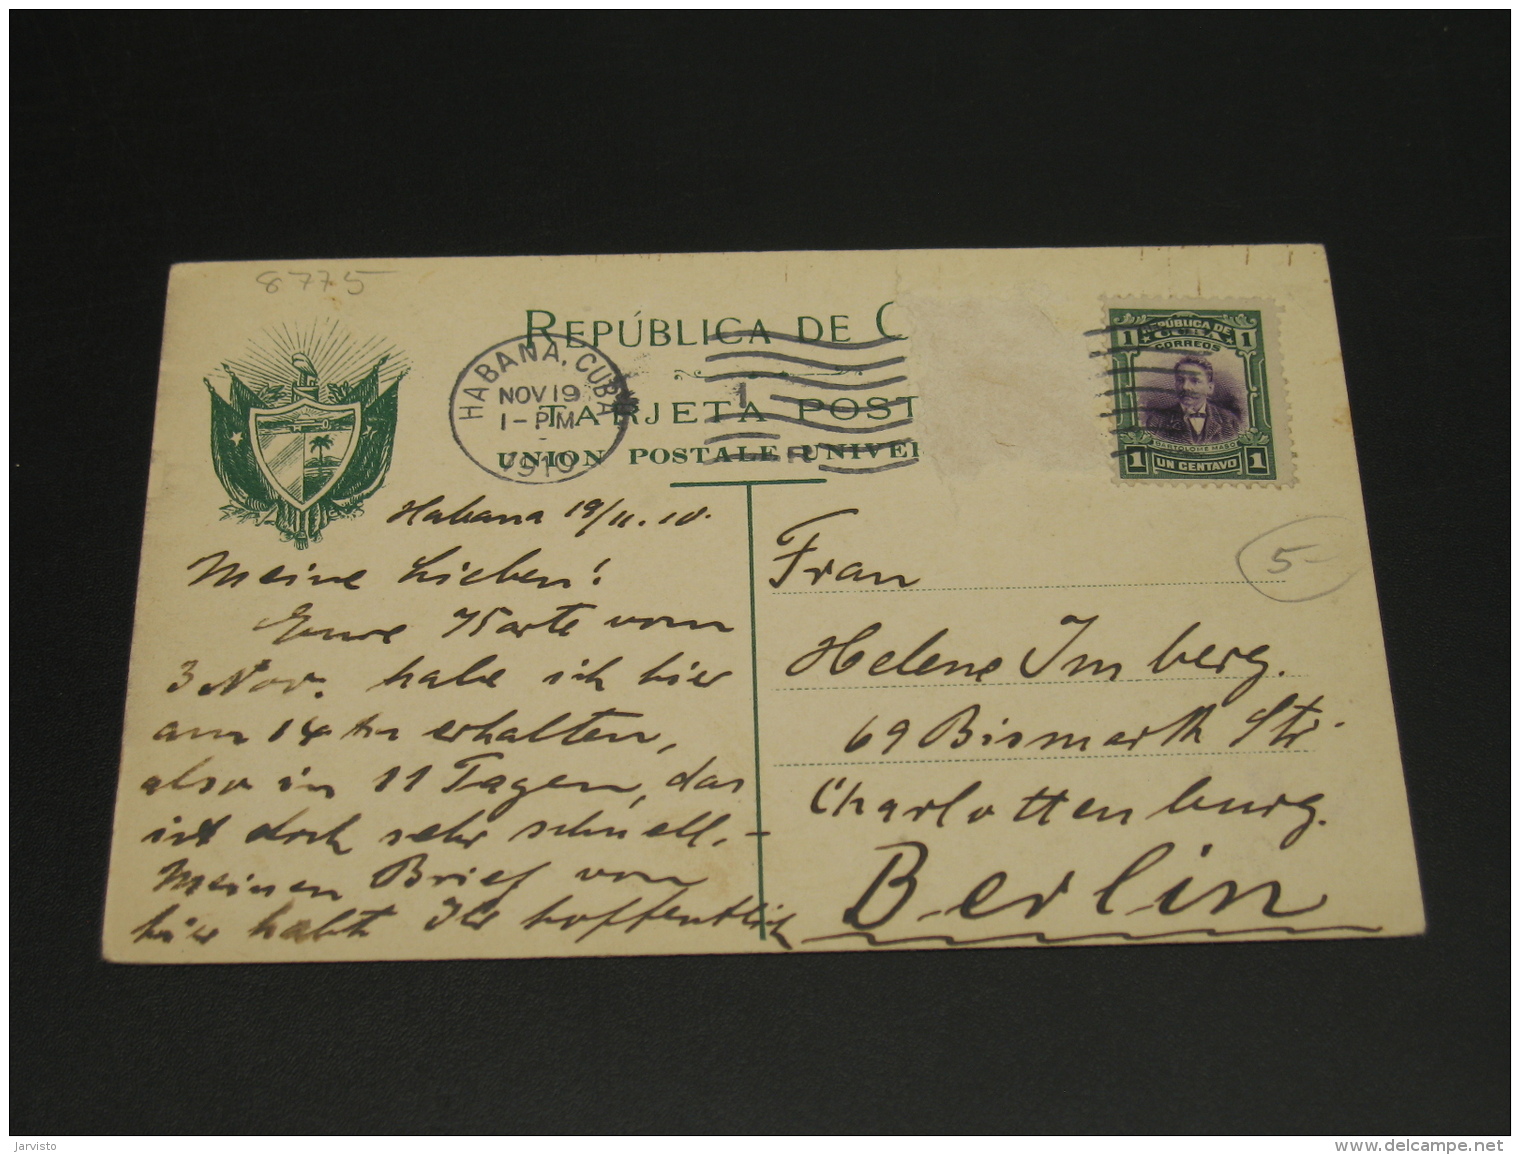 8775
REPÚBLICA DE C
HABANA, CUBA
NOV 19
1-PM
1910
TARJETA POST
UNION POSTALE UNIVER
REPÚBLICA DE
CUBA
CORREOS
1 1
BARTOLOME MASO
1 UN CENTAVO 1
Habana 19/11.10.
Meine Lieben!
Eure Karte vom
3 Nov. habe ich hier
am 14 ten erhalten,
also in 11 Tagen, das
ist doch sehr schnell. –
Meinen Brief von
hier habt Ihr hoffentlich
5-
Frau
Helene Imberg.
69 Bismarck Str.
Charlottenburg.
Berlin
jarvisto
www.delcampe.net